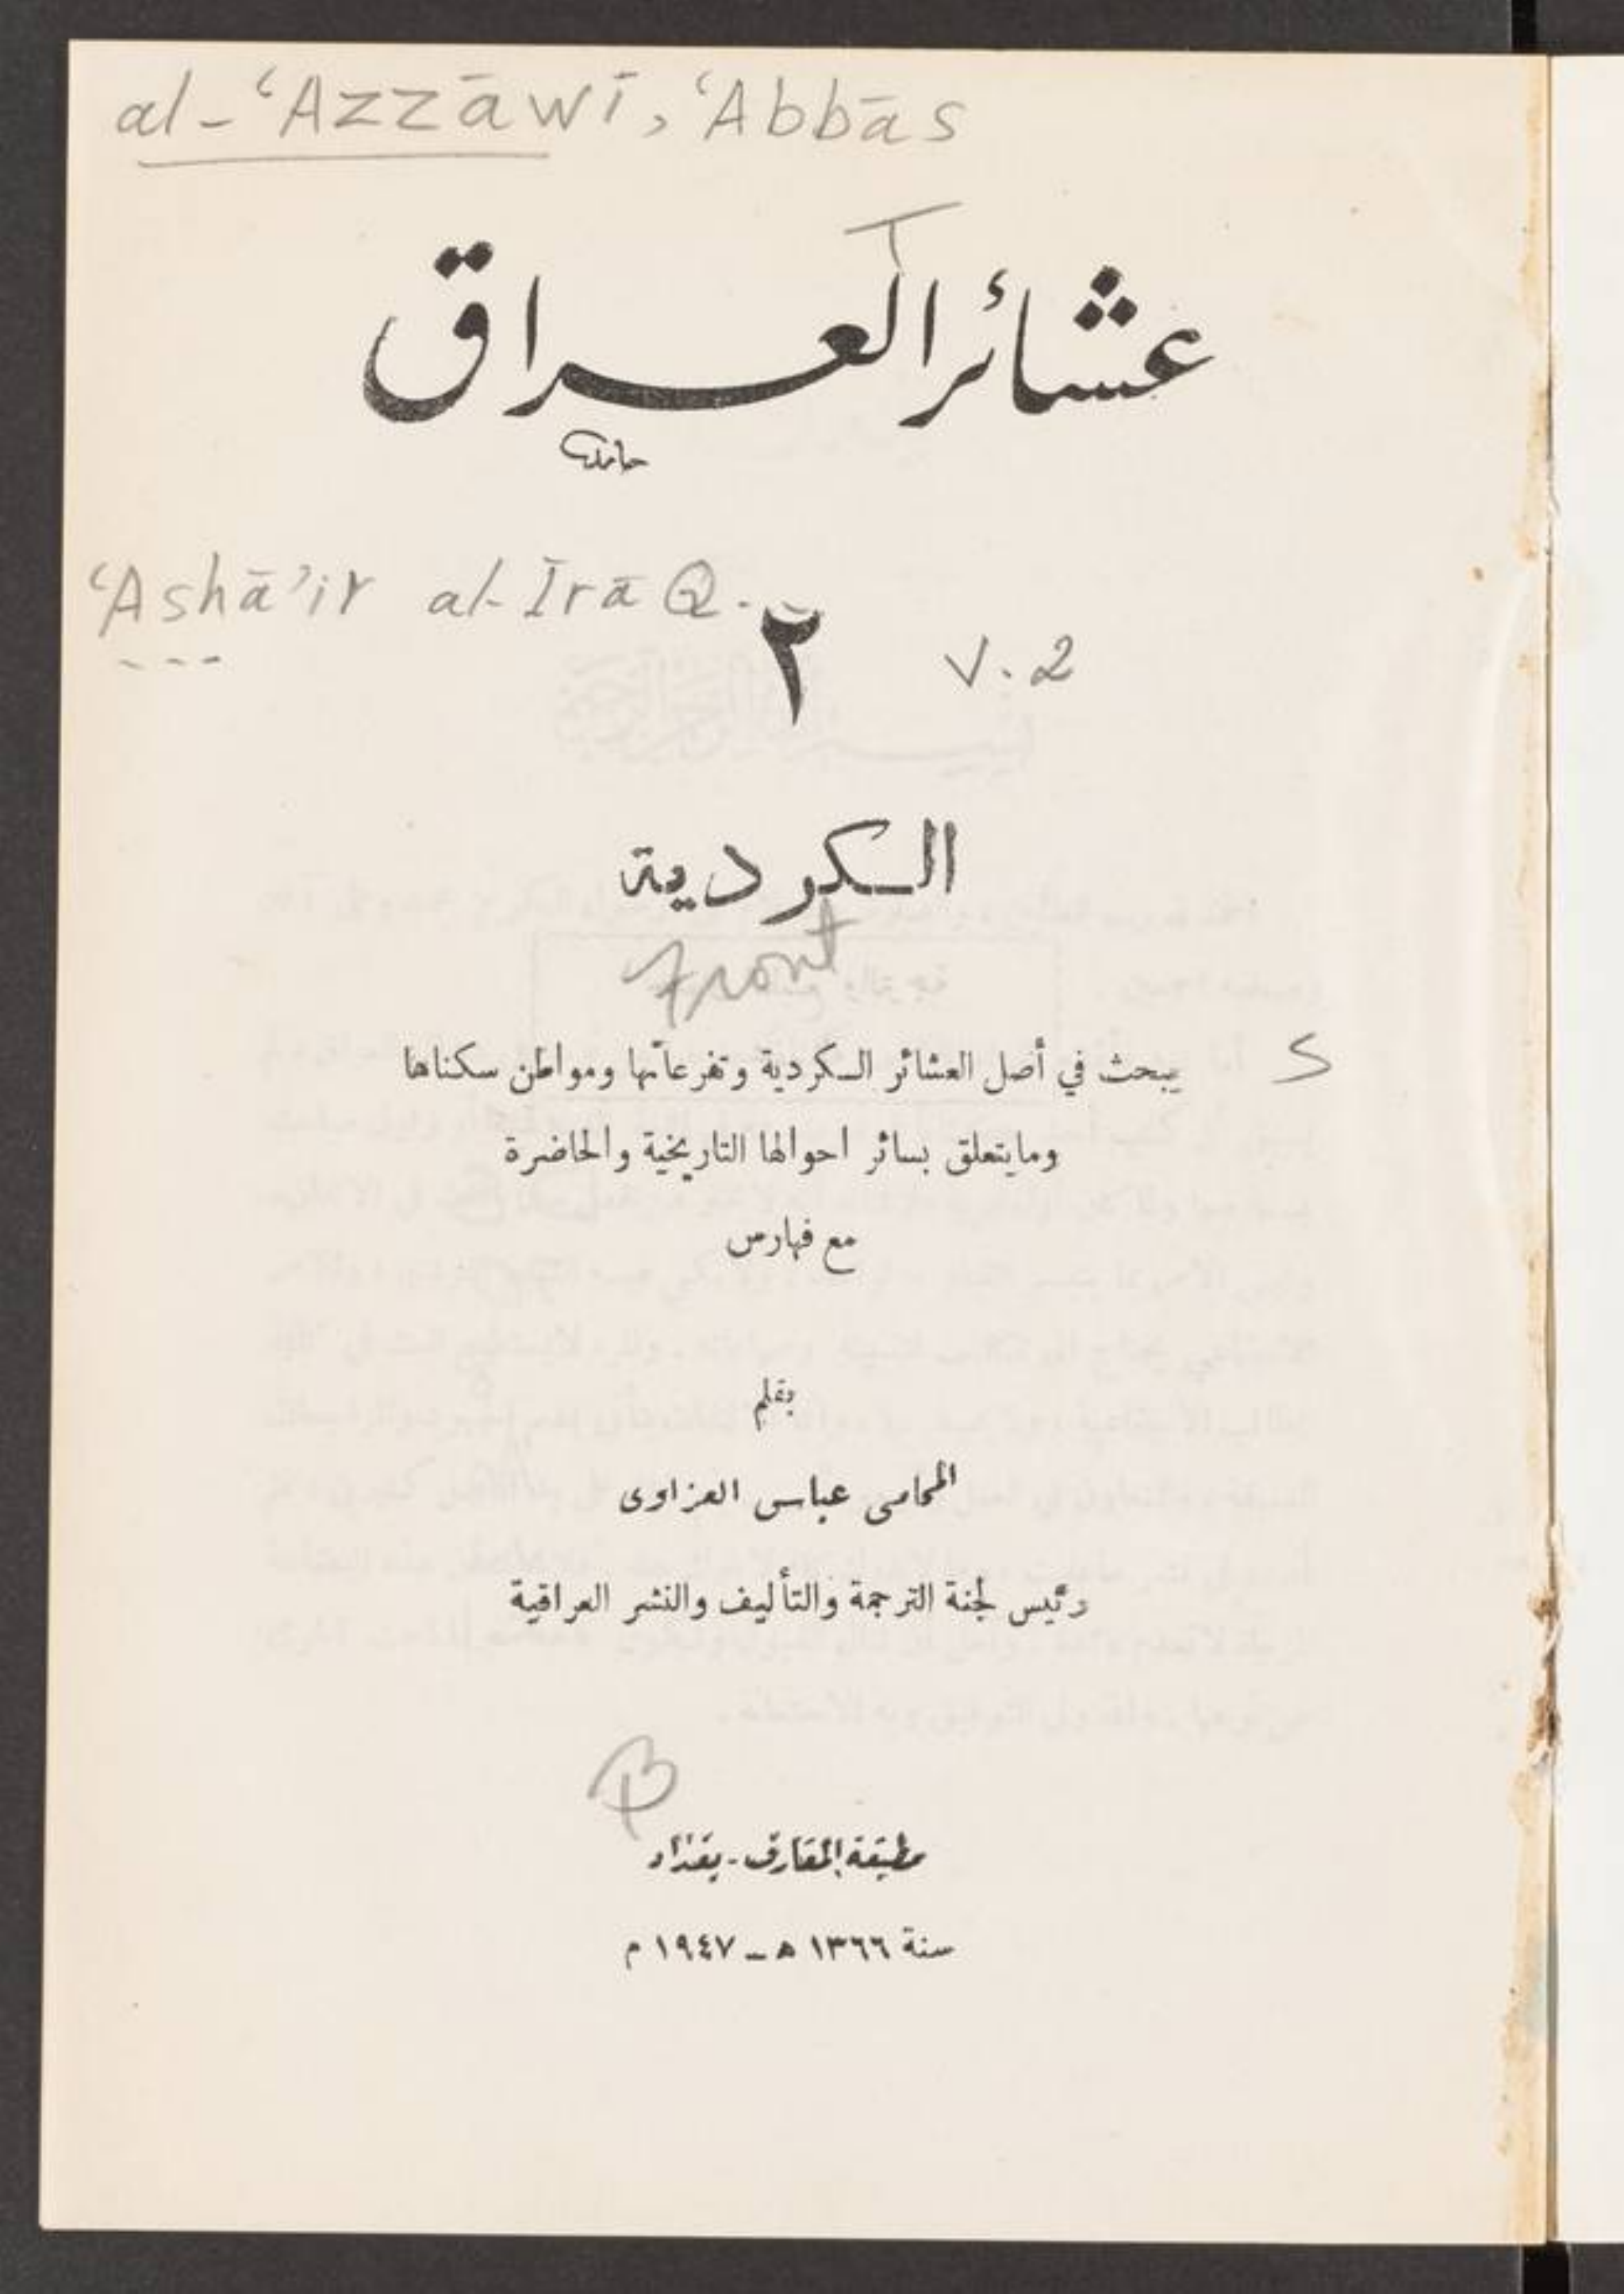 al-‘Azzāwī, ‘Abbās
T
عشائر العراق
‘Ashā’ir al-Īrā Q.
٢ v. 2
الكردية
Front
يبحث في أصل العشائر الكردية وتفرعاتها ومواطن سكناها S
ومايتعلق بسائر احوالها التاريخية والحاضرة
مع فهارس
بقلم
المحامى عباس العزاوى
رئيس لجنة الترجمة والتأليف والنشر العراقية
مطبعة المعارف - بغداد
سنة ١٣٦٦ هـ – ١٩٤٧ م